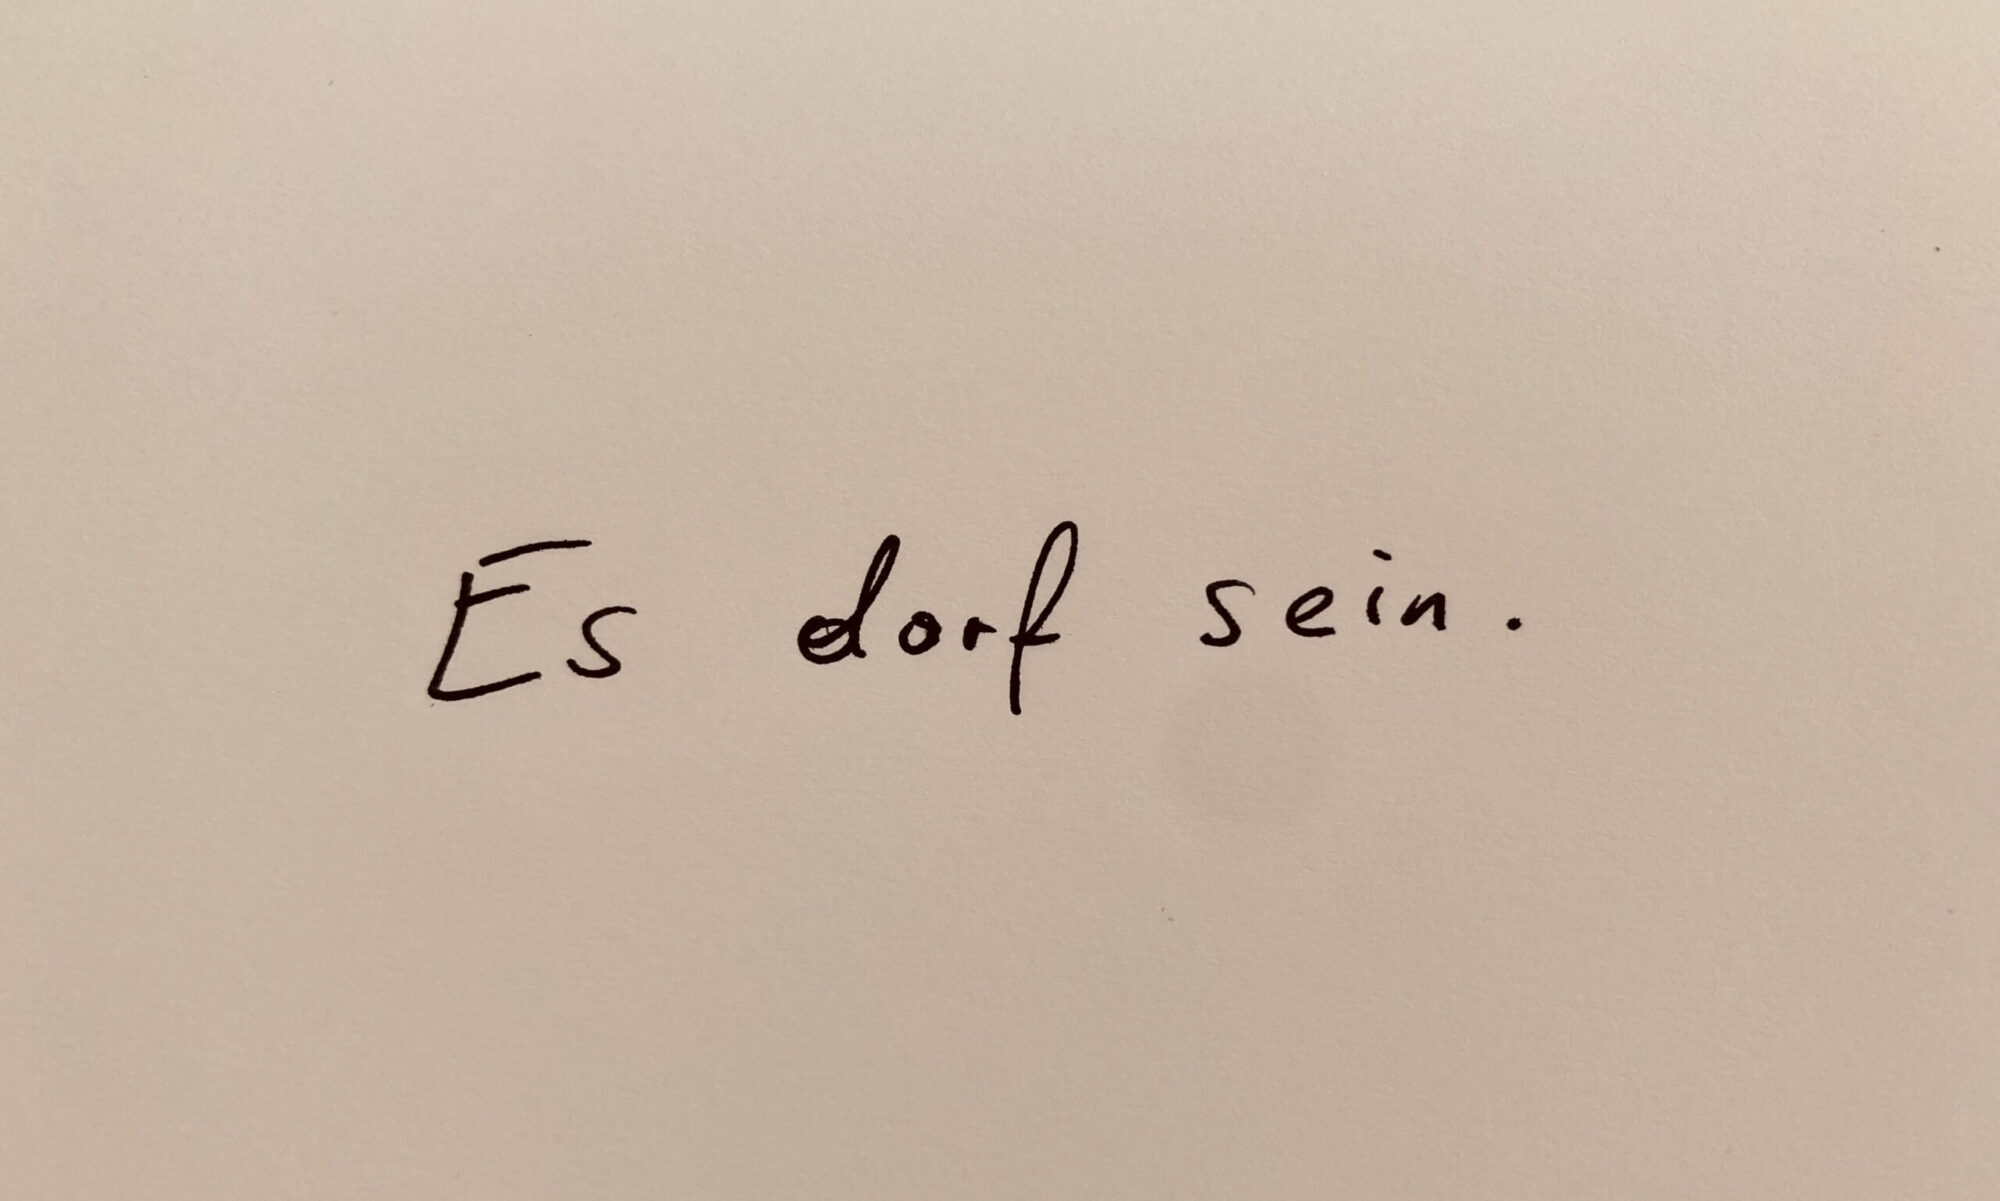 Es dorf sein.